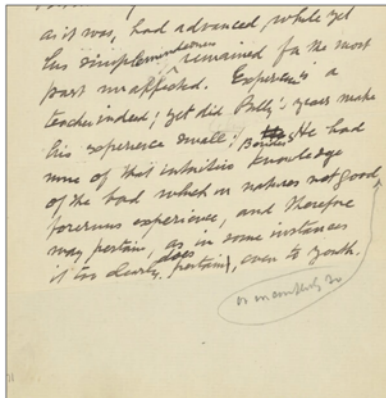 as it was, had advanced, while yet
his simplemindedness remained for the most
part unaffected. Experience is a
teacher indeed; yet did Billy's years make
his experience small; Besides He had
none of that intuitive knowledge
of the bad which in natures not good
foreruns experience, and therefore
may pertain, as in some instances
it too clearly does pertain, even to youth.
or incompletely so